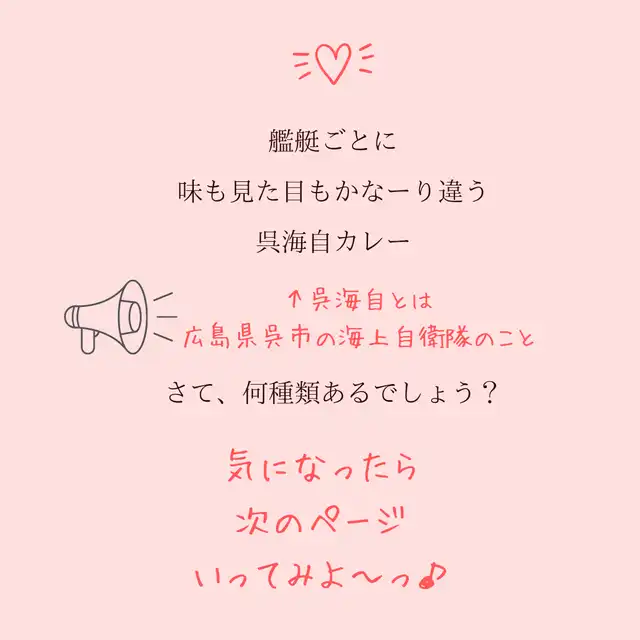 艦艇ごとに
味も見た目もかなーり違う
呉海自カレー
↑呉海自とは
広島県呉市の海上自衛隊のこと
さて、何種類あるでしょう？
気になったら
次のページ
いってみよ〜っ♪